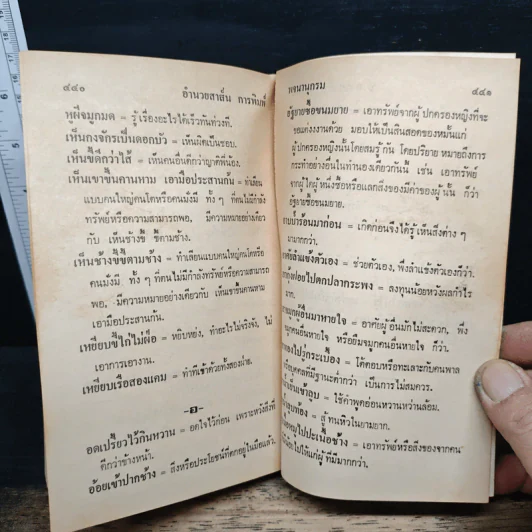 ๔๔๐
อำนวยสาส์น การพิมพ์
หูผีจมูกมด = รู้เรื่องอะไรได้เร็วทันท่วงที.
เห็นกงจักรเป็นดอกบัว = เห็นผิดเป็นชอบ.
เห็นขี้ดีกว่าไส้ = เห็นคนอื่นดีกว่าญาติพี่น้อง.
เห็นเขาขึ้นคานหาม เอามือประสานก้น = ทำเลียน
แบบคนใหญ่คนโตหรือคนมั่งมี ทั้ง ๆ ที่ตนไม่มีกำลัง
ทรัพย์หรือความสามารถพอ, มีความหมายอย่างเดียว
กับ เห็นช้างขี้ ขี้ตามช้าง.
เห็นช้างขี้ขี้ตามช้าง = ทำเลียนแบบคนใหญ่คนโตหรือ
คนมั่งมี ทั้ง ๆ ที่ตนไม่มีกำลังทรัพย์หรือความสามารถ
พอ, มีความหมายอย่างเดียวกับ เห็นเขาขึ้นคานหาม
เอามือประสานก้น.
เหยียบขี้ไก่ไม่ฝ่อ = หยิบหย่ง, ทำอะไรไม่จริงจัง, ไม่
เอาการเอางาน.
เหยียบเรือสองแคม = ทำทีเข้าด้วยทั้งสองฝ่าย.
-อ-
อดเปรี้ยวไว้กินหวาน = อดใจไว้ก่อน เพราะหวังสิ่งที่
ดีกว่าข้างหน้า.
อ้อยเข้าปากช้าง = สิ่งหรือประโยชน์ที่ตกอยู่ในมือแล้ว.
พจนานุกรม
๔๔๑
อัฐยายซื้อขนมยาย = เอาทรัพย์จากผู้ปกครองหญิงที่จะ
ขอแต่งงานด้วย มอบให้เป็นสินสอดของหมั้นแก่
ผู้ปกครองหญิงนั้นโดยสมรู้กัน โดยปริยาย หมายถึงการ
กระทำอย่างอื่นในทำนองเดียวกันนี้ เช่น เอาทรัพย์
จากผู้ใดผู้หนึ่งซื้อหรือแลกสิ่งของมีค่าของผู้นั้น ก็ว่า
อัฐยายซื้อขนมยาย.
อาบน้ำร้อนมาก่อน = เกิดก่อนจึงได้รู้เห็นสิ่งต่าง ๆ
มามากกว่า.
= ช่วยตัวเอง, พึ่งลำแข้งตัวเองก็ว่า.
ฝอยไปตกปลากะพง = ลงทุนน้อยหวังผลกำไร
มาก.
จมูกผู้อื่นมาหายใจ = อาศัยผู้อื่นมักไม่สะดวก, พึ่ง
จมูกคนอื่นหายใจ หรือยืมจมูกคนอื่นหายใจ ก็ว่า.
ทองไปรู่กระเบื้อง = โต้ตอบหรือทะเลาะกับคนพาล
หรือบุคคลที่มีฐานะต่ำกว่า เป็นการไม่สมควร.
เข้าลูบ = ใช้คำพูดอ่อนหวานหว่านล้อม.
ลูบท้อง = สู้ทนหิวในยามยาก.
ไปปะเนื้อช้าง = เอาทรัพย์หรือสิ่งของจากคน
ไปให้แก่ผู้ที่มีมากกว่า.